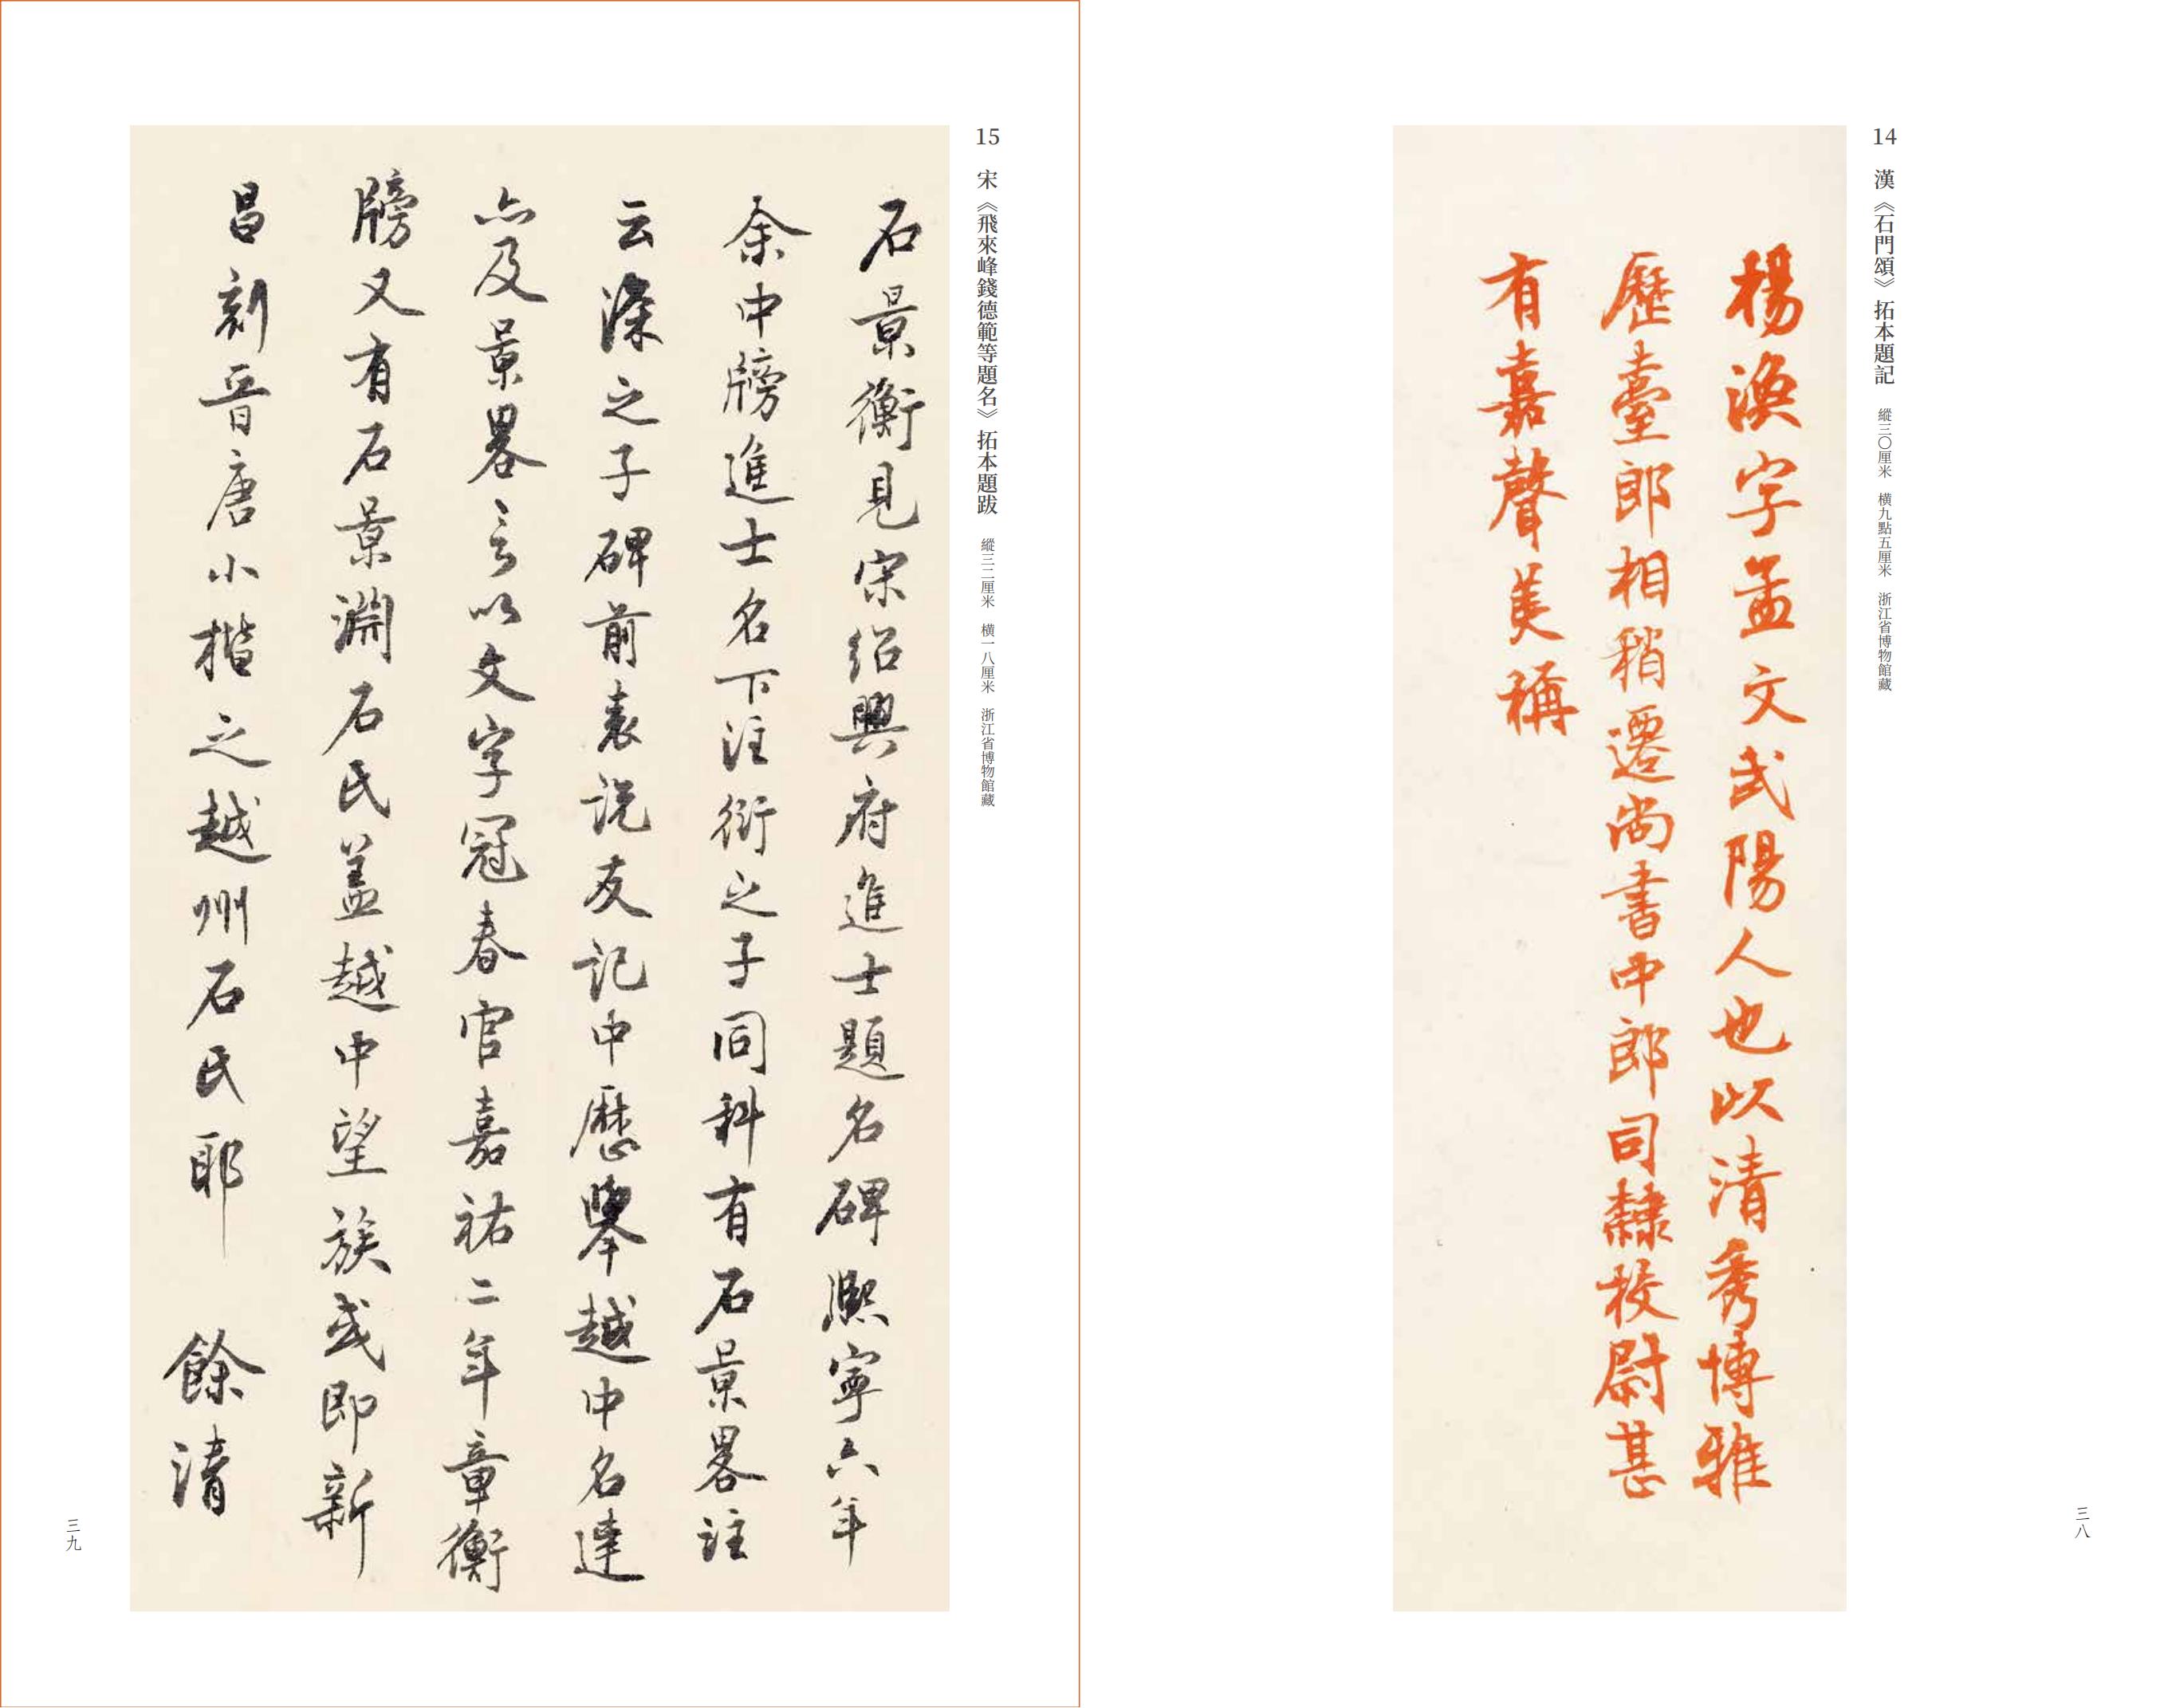 14 漢《石門頌》拓本題記 縱三〇厘米 橫九點五厘米 浙江省博物館藏
楊渙字孟文武陽人也以清秀博雅
歷臺郎相稍遷尚書中郎司隸校尉甚
有嘉聲美稱
三八
15 宋《飛來峰錢德範等題名》拓本題跋 縱三二厘米 橫一八厘米 浙江省博物館藏
石景衡見宋紹興府進士題名碑熙寧六年
余中牓進士名下注衍之子同科有石景畧註
云深之子碑前表說友記中歷舉越中名達
亦及景畧言以文字冠春官嘉祐二年章衡
牓又有石景淵石氏蓋越中望族或即新
昌刻晉唐小楷之越州石氏耶 餘清
三九